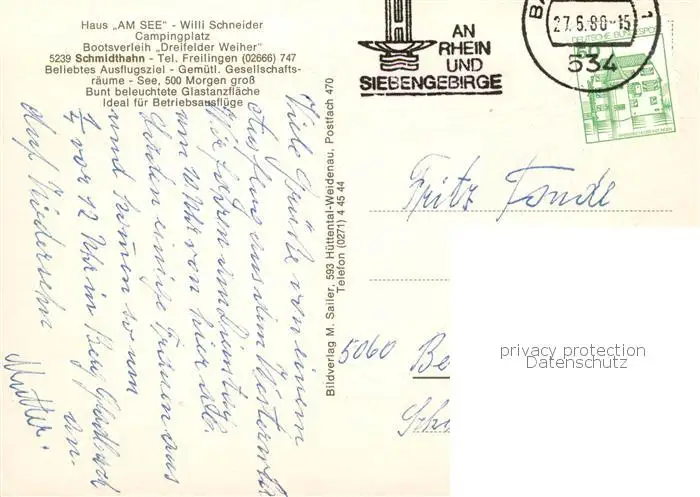 Haus „AM SEE" - Willi Schneider
Campingplatz
Bootsverleih „Dreifelder Weiher"
5239 Schmidthahn - Tel. Freilingen (02666) 747
Beliebtes Ausflugsziel - Gemütl. Gesellschafts-
räume - See, 500 Morgen groß
Bunt beleuchtete Glastanzfläche
Ideal für Betriebsausflüge
Viele Grüße von einem
Ausflug aus dem Westerwald
Wir fahren am Dienstag
um 10 Uhr von hier ab.
einige Frauen aus
und kommen so um
½ vor 12 Uhr in Berg. Gladbach
an.
Auf Wiedersehn
Mutter.
Bildverlag M. Sailer, 593 Hüttental-Weidenau, Postfach 470
Telefon (0271) 4 45 44
AN
RHEIN
UND
SIEBENGEBIRGE
BA
27.6.80-15
1
534
DEUTSCHE BUNDESPOST
50
Fritz Fonde
5060 Be
Sch
privacy protection
Datenschutz